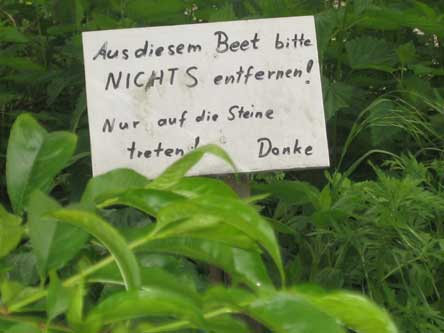 Aus diesem Beet bitte
NICHTS entfernen!
Nur auf die Steine
treten! Danke